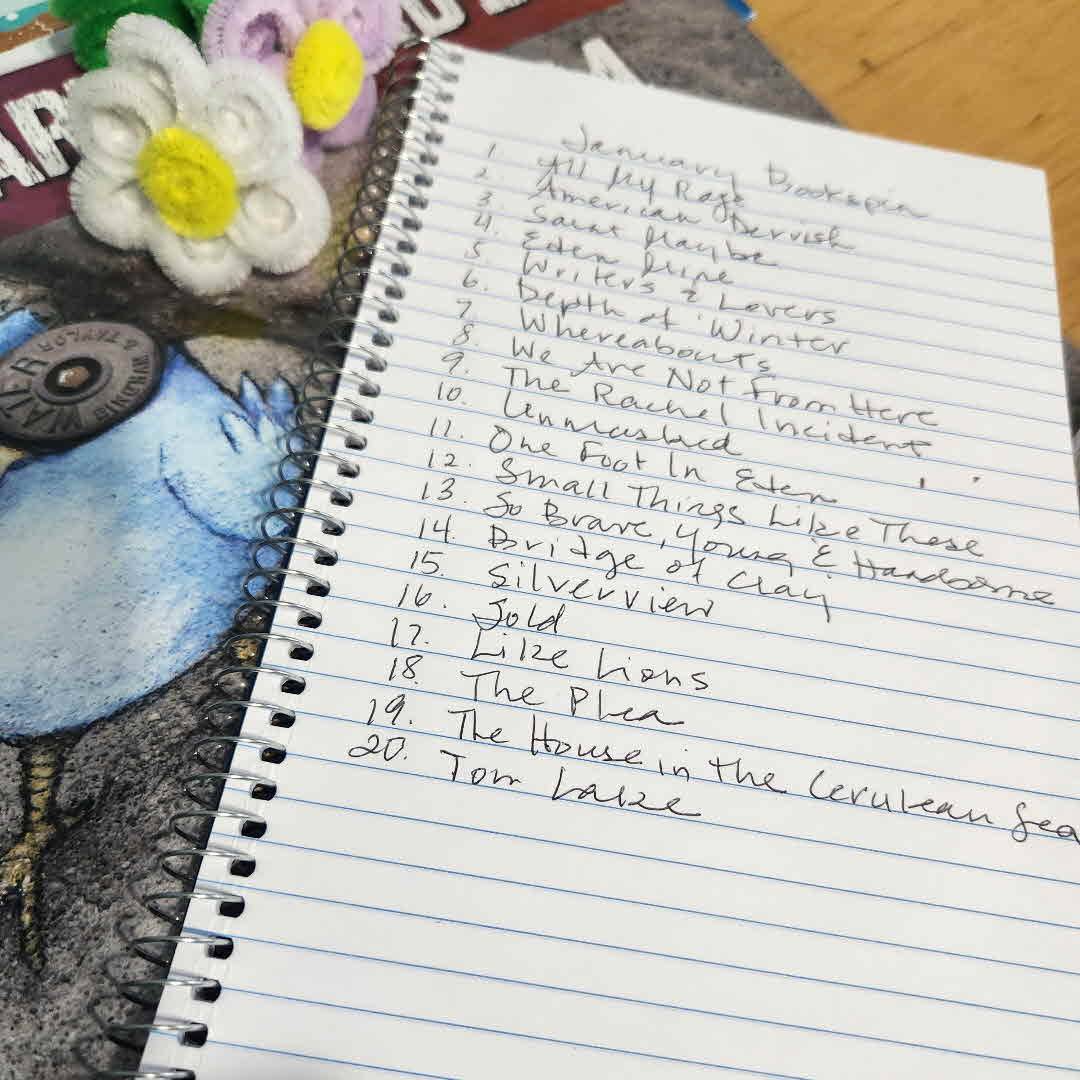 January Bookspin
1. All My Rage
2. American Dervish
3. Saint Maybe
4. Eden Mine
5. Writers & Lovers
6. Depth of Winter
7. Whereabouts
8. We Are Not From Here
9. The Rachel Incident
10. Unmasked
11. One Foot In Eden
12. Small Things Like These
13. So Brave, Young & Handsome
14. Bridge of Clay
15. Silverview
16. Sold
17. Like Lions
18. The Plea
19. The House in the Cerulean Sea
20. Tom Lake
WATER